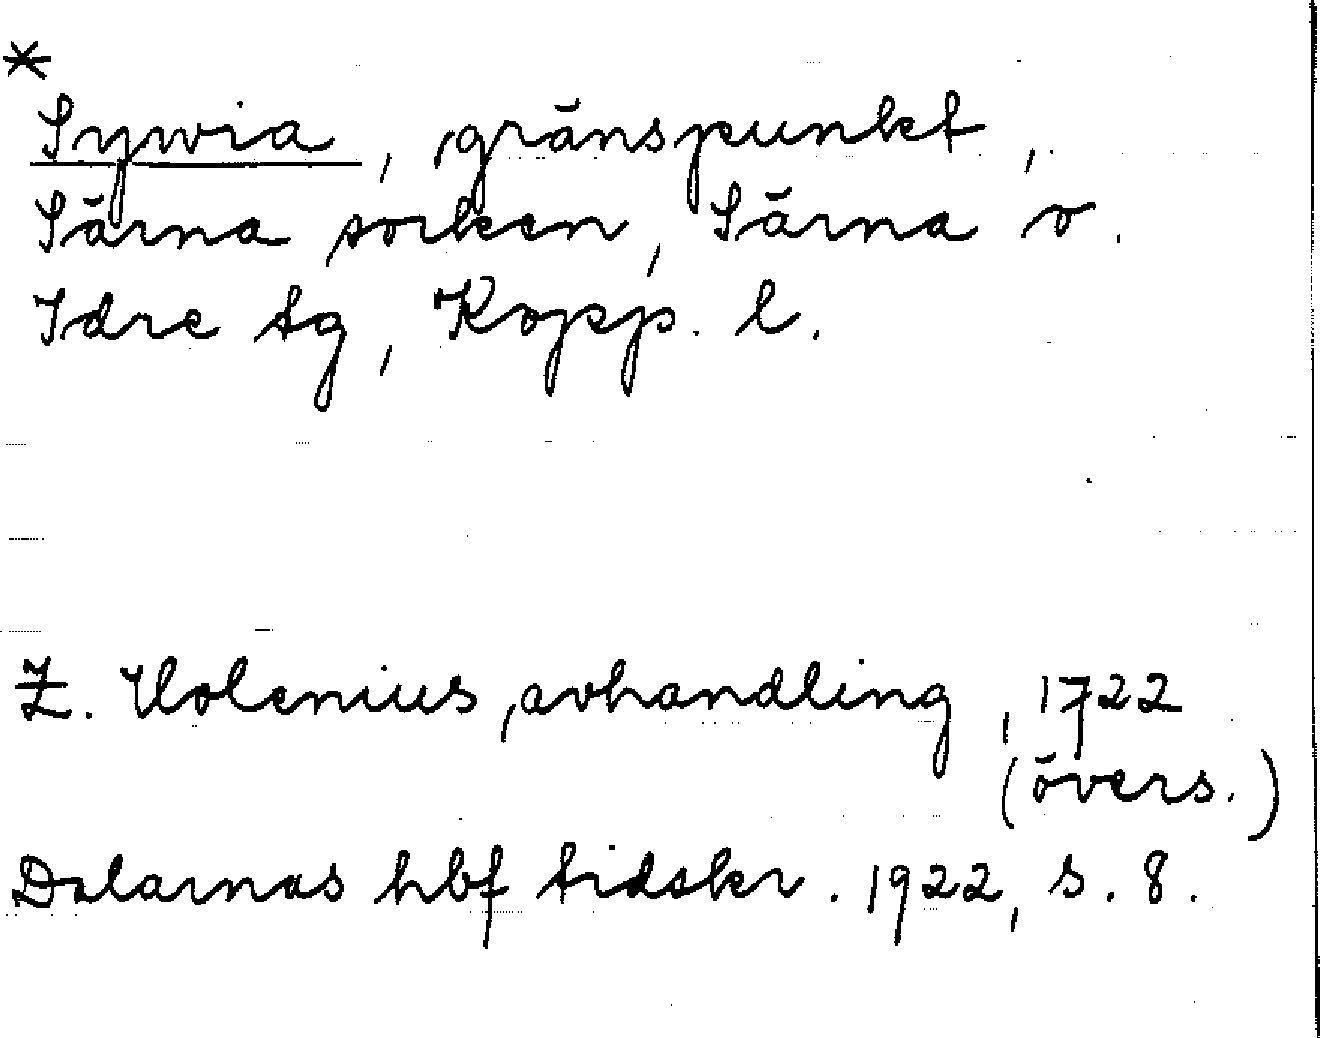 *
Sywia, gränspunkt,
Särna socken, Särna o.
Idre tg, Kopp. l.
Z. Holenius, avhandling, 1722
(övers.)
Dalarnas hbf tidskr. 1922, s. 8.